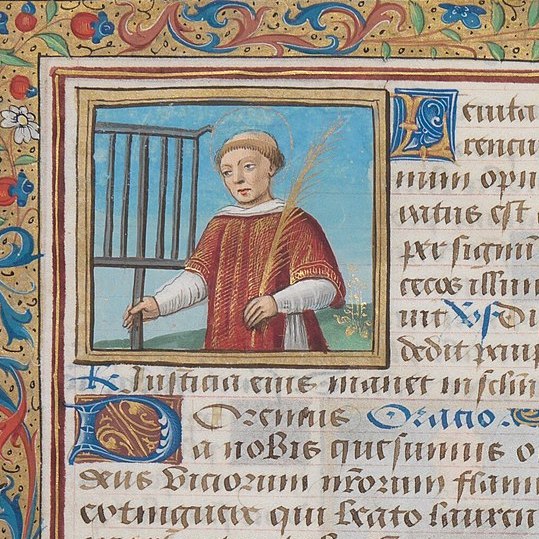 Leuita
rencii
num opu
ratus est
per signu
cecos illum
uit Vs Di
dedit paup
R Justicia eius manet in sclm
Oremus Oratio.
Da nobis quesumus o
deus viciorum nrorum flam
extinguere qui beato lauren